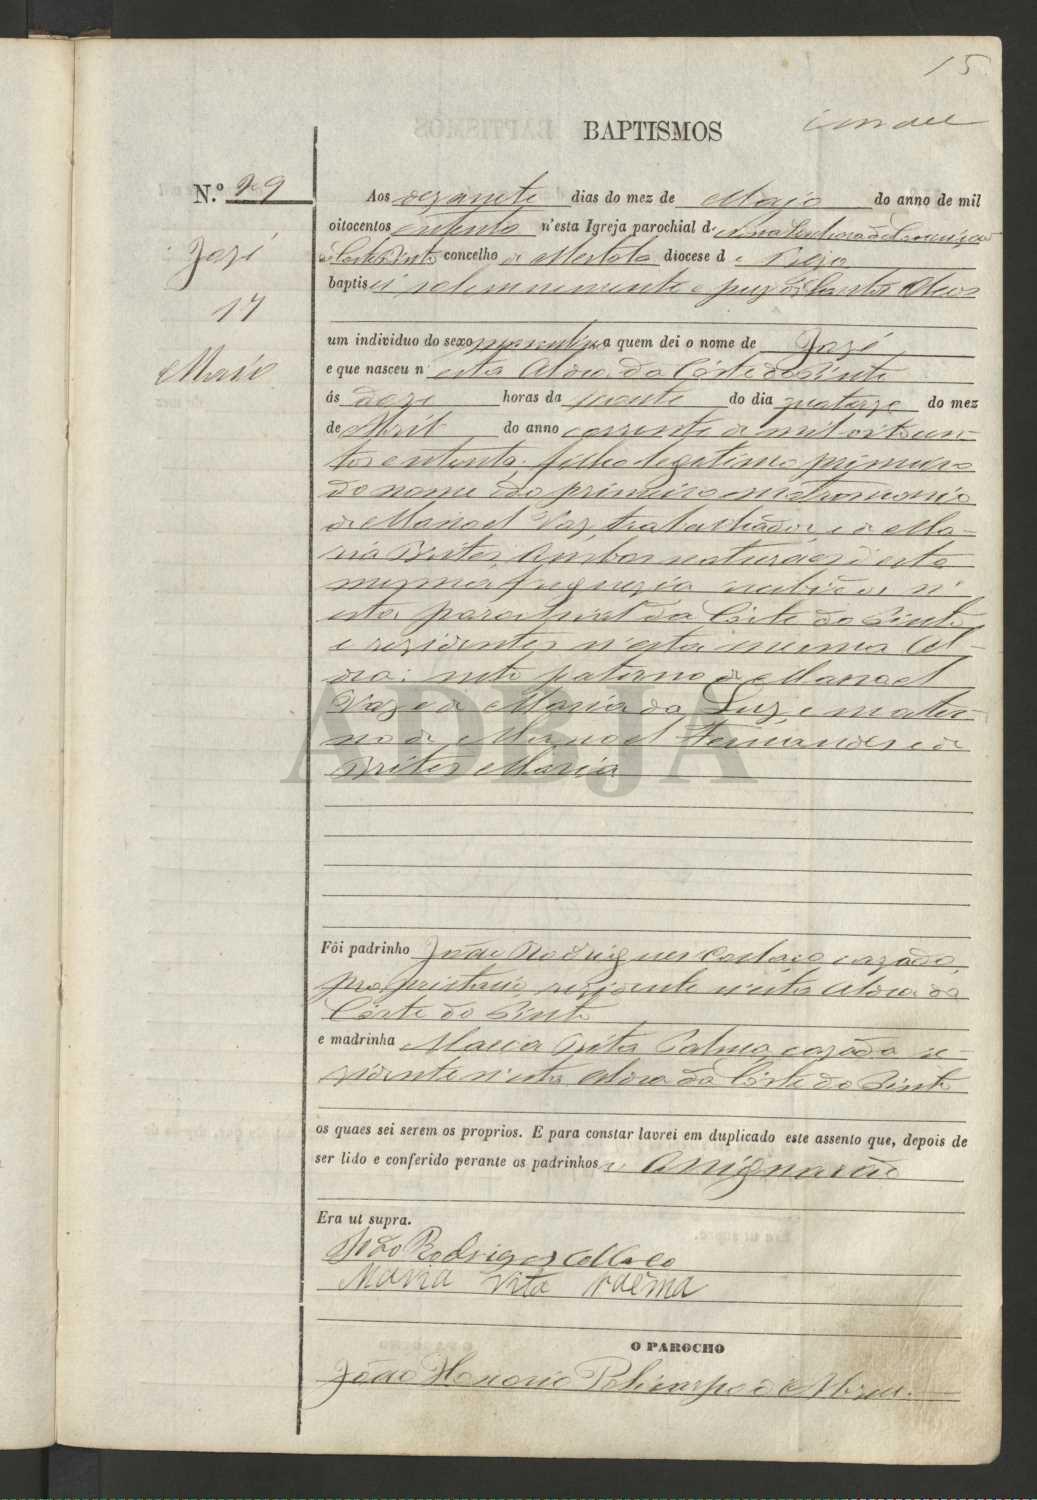 15
BAPTISMOS
N.º 29
José
17
Maio
Aos dezasete dias do mez de Maio do anno de mil
oitocentos oitenta n'esta Igreja parochial de Nossa Senhora da Conceição
da Corte do Pinto concelho de Mertola diocese de Beja
baptisei solemnemente e puz os Santos Oleos
um individuo do sexo masculino a quem dei o nome de José
e que nasceu n'esta Aldea da Côrte do Pinto
ás doze horas da noute do dia quatorze do mez
de Abril do anno corrente de mil oitocen-
tos oitenta, filho legitimo primeiro
do nome e do primeiro matromonio
de Manoel Vaz, trabalhador, e de Ma-
ria Brites, ambos naturaes d'esta
mesma freguezia recebidos n'
esta parochial da Côrte do Pinto
e rezidentes n'esta mesma Al-
dea: neto paterno de Manoel
Vaz e de Maria da Luz, e mater-
no de Manoel Fernandes e de
Brites Maria
Fôi padrinho João Rodrigues Collaço cazado,
proprietario, rezidente n'esta Aldea da
Côrte do Pinto
e madrinha Maria Rita Palma, cazada re-
zidente n'esta Aldea da Côrte do Pinto
os quaes sei serem os proprios. E para constar lavrei em duplicado este assento que, depois de
ser lido e conferido perante os padrinhos assignarão
Era ut supra.
João Rodrigues Collaco
Maria Rita Palma
O PAROCHO
João Honorio Policarpo d'Abreu
ADBJA